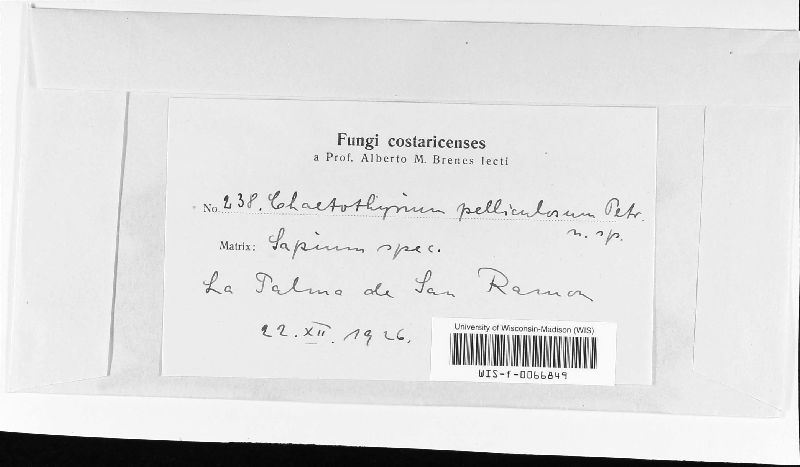 Fungi costaricenses
a Prof. Alberto M. Brenes lecti
No. 238. Chaetothyrium pelliculosum Petr.
n. sp.
Matrix: Sapium spec.
La Palma de San Ramon
22. XII. 1926.
University of Wisconsin-Madison (WIS)
WIS-f-0066849